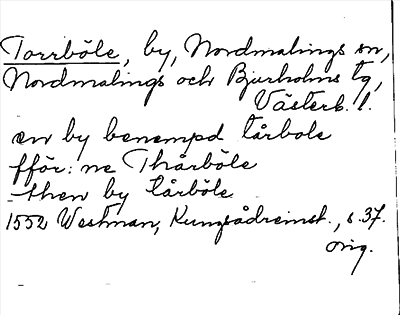 Torrböle, by, Nordmalings sn,
Nordmalings och Bjurholms tg,
Västerb. l.
en by benempd tårbole
fför: ne Thårböle
then by tårböle
1552 Westman, Kungsådreinst., s. 37.
orig.